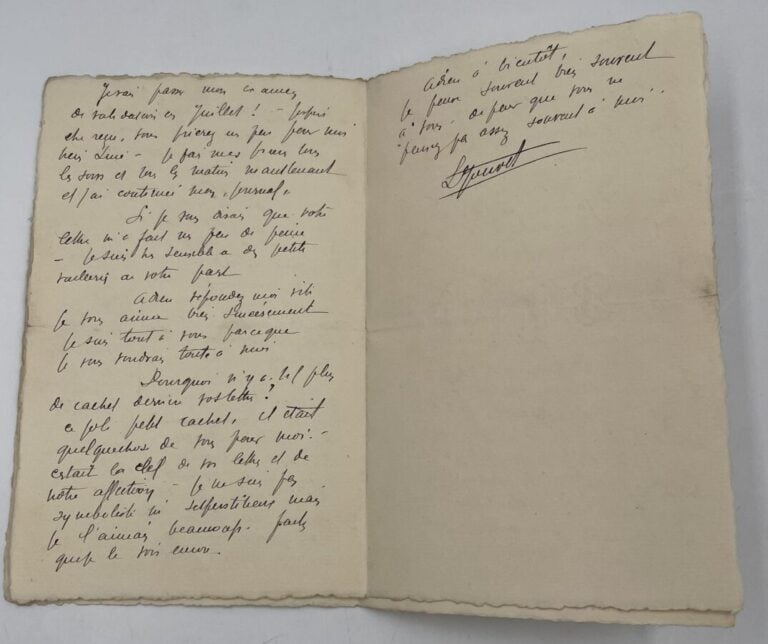 J'irai passer mon examen
de en Juillet ! -
être reçu, vous prierez un peu pour moi
- Je fais mes tous
les soirs et tous les matins maintenant
et j'ai continué mon journal.
Si je vous disais que votre
lettre m'a fait un peu de peine
- je suis très sensible a des petites
de votre part
Adieu répondez moi vite
Je vous aime bien sincèrement
je suis tout à vous parceque
Je vous voudrais toute à moi
Pourquoi n'y a-t-il plus
de cachet derrière vos lettres ?
ce joli petit cachet, il était
quelquechose de vous pour moi. -
c'était la clef de vos lettres et de
notre affection - Je ne suis pas
symboliste ni mais
je l'aimais beaucoup.
que je le vois encore.
Adieu à bientôt,
Je pense souvent bien souvent
à vous. de peur que vous ne
pensiez pas assez souvent à moi.
LJouvet